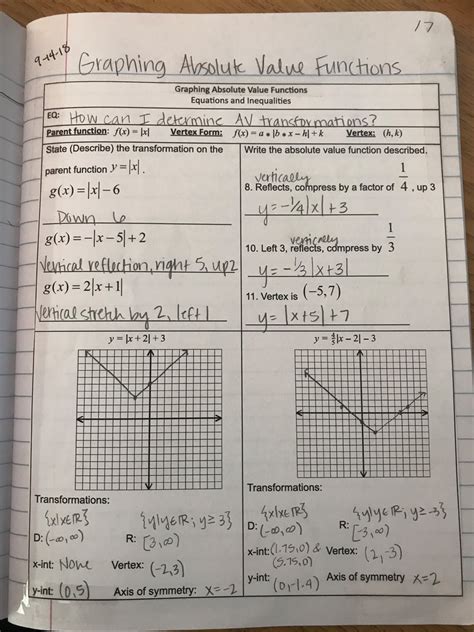 17
9-14-18
Graphing Absolute Value Functions
Graphing Absolute Value Functions
Equations and Inequalities
EQ: How can I determine AV transformations?
Parent function: f(x) = |x| Vertex Form: f(x) = a • |b • x − h| + k Vertex: (h, k)
State (Describe) the transformation on the
parent function y = |x|.
g(x) = |x| − 6
Down 6
g(x) = −|x − 5| + 2
Vertical reflection, right 5, up 2
g(x) = 2|x + 1|
Vertical stretch by 2, left 1
Write the absolute value function described.
vertically
8. Reflects, compress by a factor of 1/4, up 3
y = -1/4|x| + 3
vertically
10. Left 3, reflects, compress by 1/3
y = -1/3|x+3|
11. Vertex is (−5,7)
y = |x+5| + 7
y = |x + 2| + 3
Transformations:
{x|x∈ℝ} {y|y∈ℝ; y≥3}
D: (-∞, ∞) R: [3, ∞)
x-int: None Vertex: (-2,3)
y-int: (0,5) Axis of symmetry: x=-2
y = 4/5|x − 2| − 3
Transformations:
{x|x∈ℝ} {y|y∈ℝ; y≥-3}
D: (-∞, ∞) R: [-3, ∞)
x-int: (1.75,0) & (5.75,0) Vertex: (2,-3)
y-int: (0,-1.4) Axis of symmetry x=2